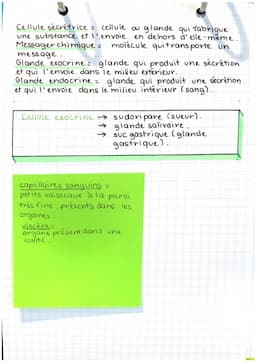 Cellule sécrétrice : cellule ou glande qui fabrique
une substance et l'envoie en dehors d'elle-même.
Messager chimique : molécule qui transporte un
message.
Glande exocrine : glande qui produit une sécrétion
et qui l'envoie dans le milieu extérieur.
Glande endocrine : glande qui produit une sécrétion
et qui l'envoie dans le milieu intérieur (sang).
Cellule exocrine → sudoripare (sueur).
→ glande salivaire.
→ suc gastrique (glande
gastrique).
capillaires sanguins :
petits vaisseaux à la paroi
très fine, présents dans les
organes.
viscère :
organe présent dans une
cavité.